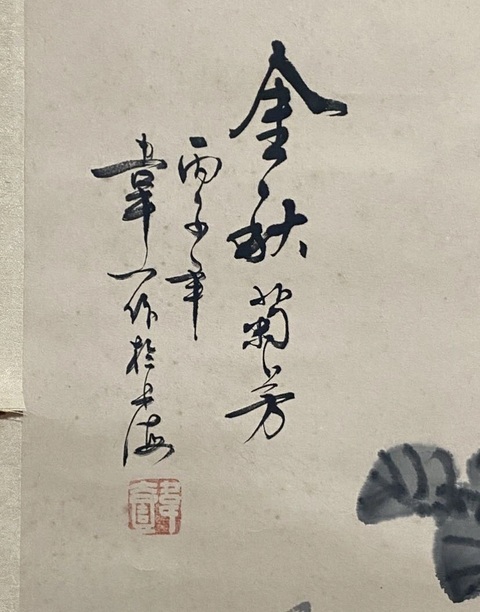 金秋菊芳
丙子年
韋一作於上海